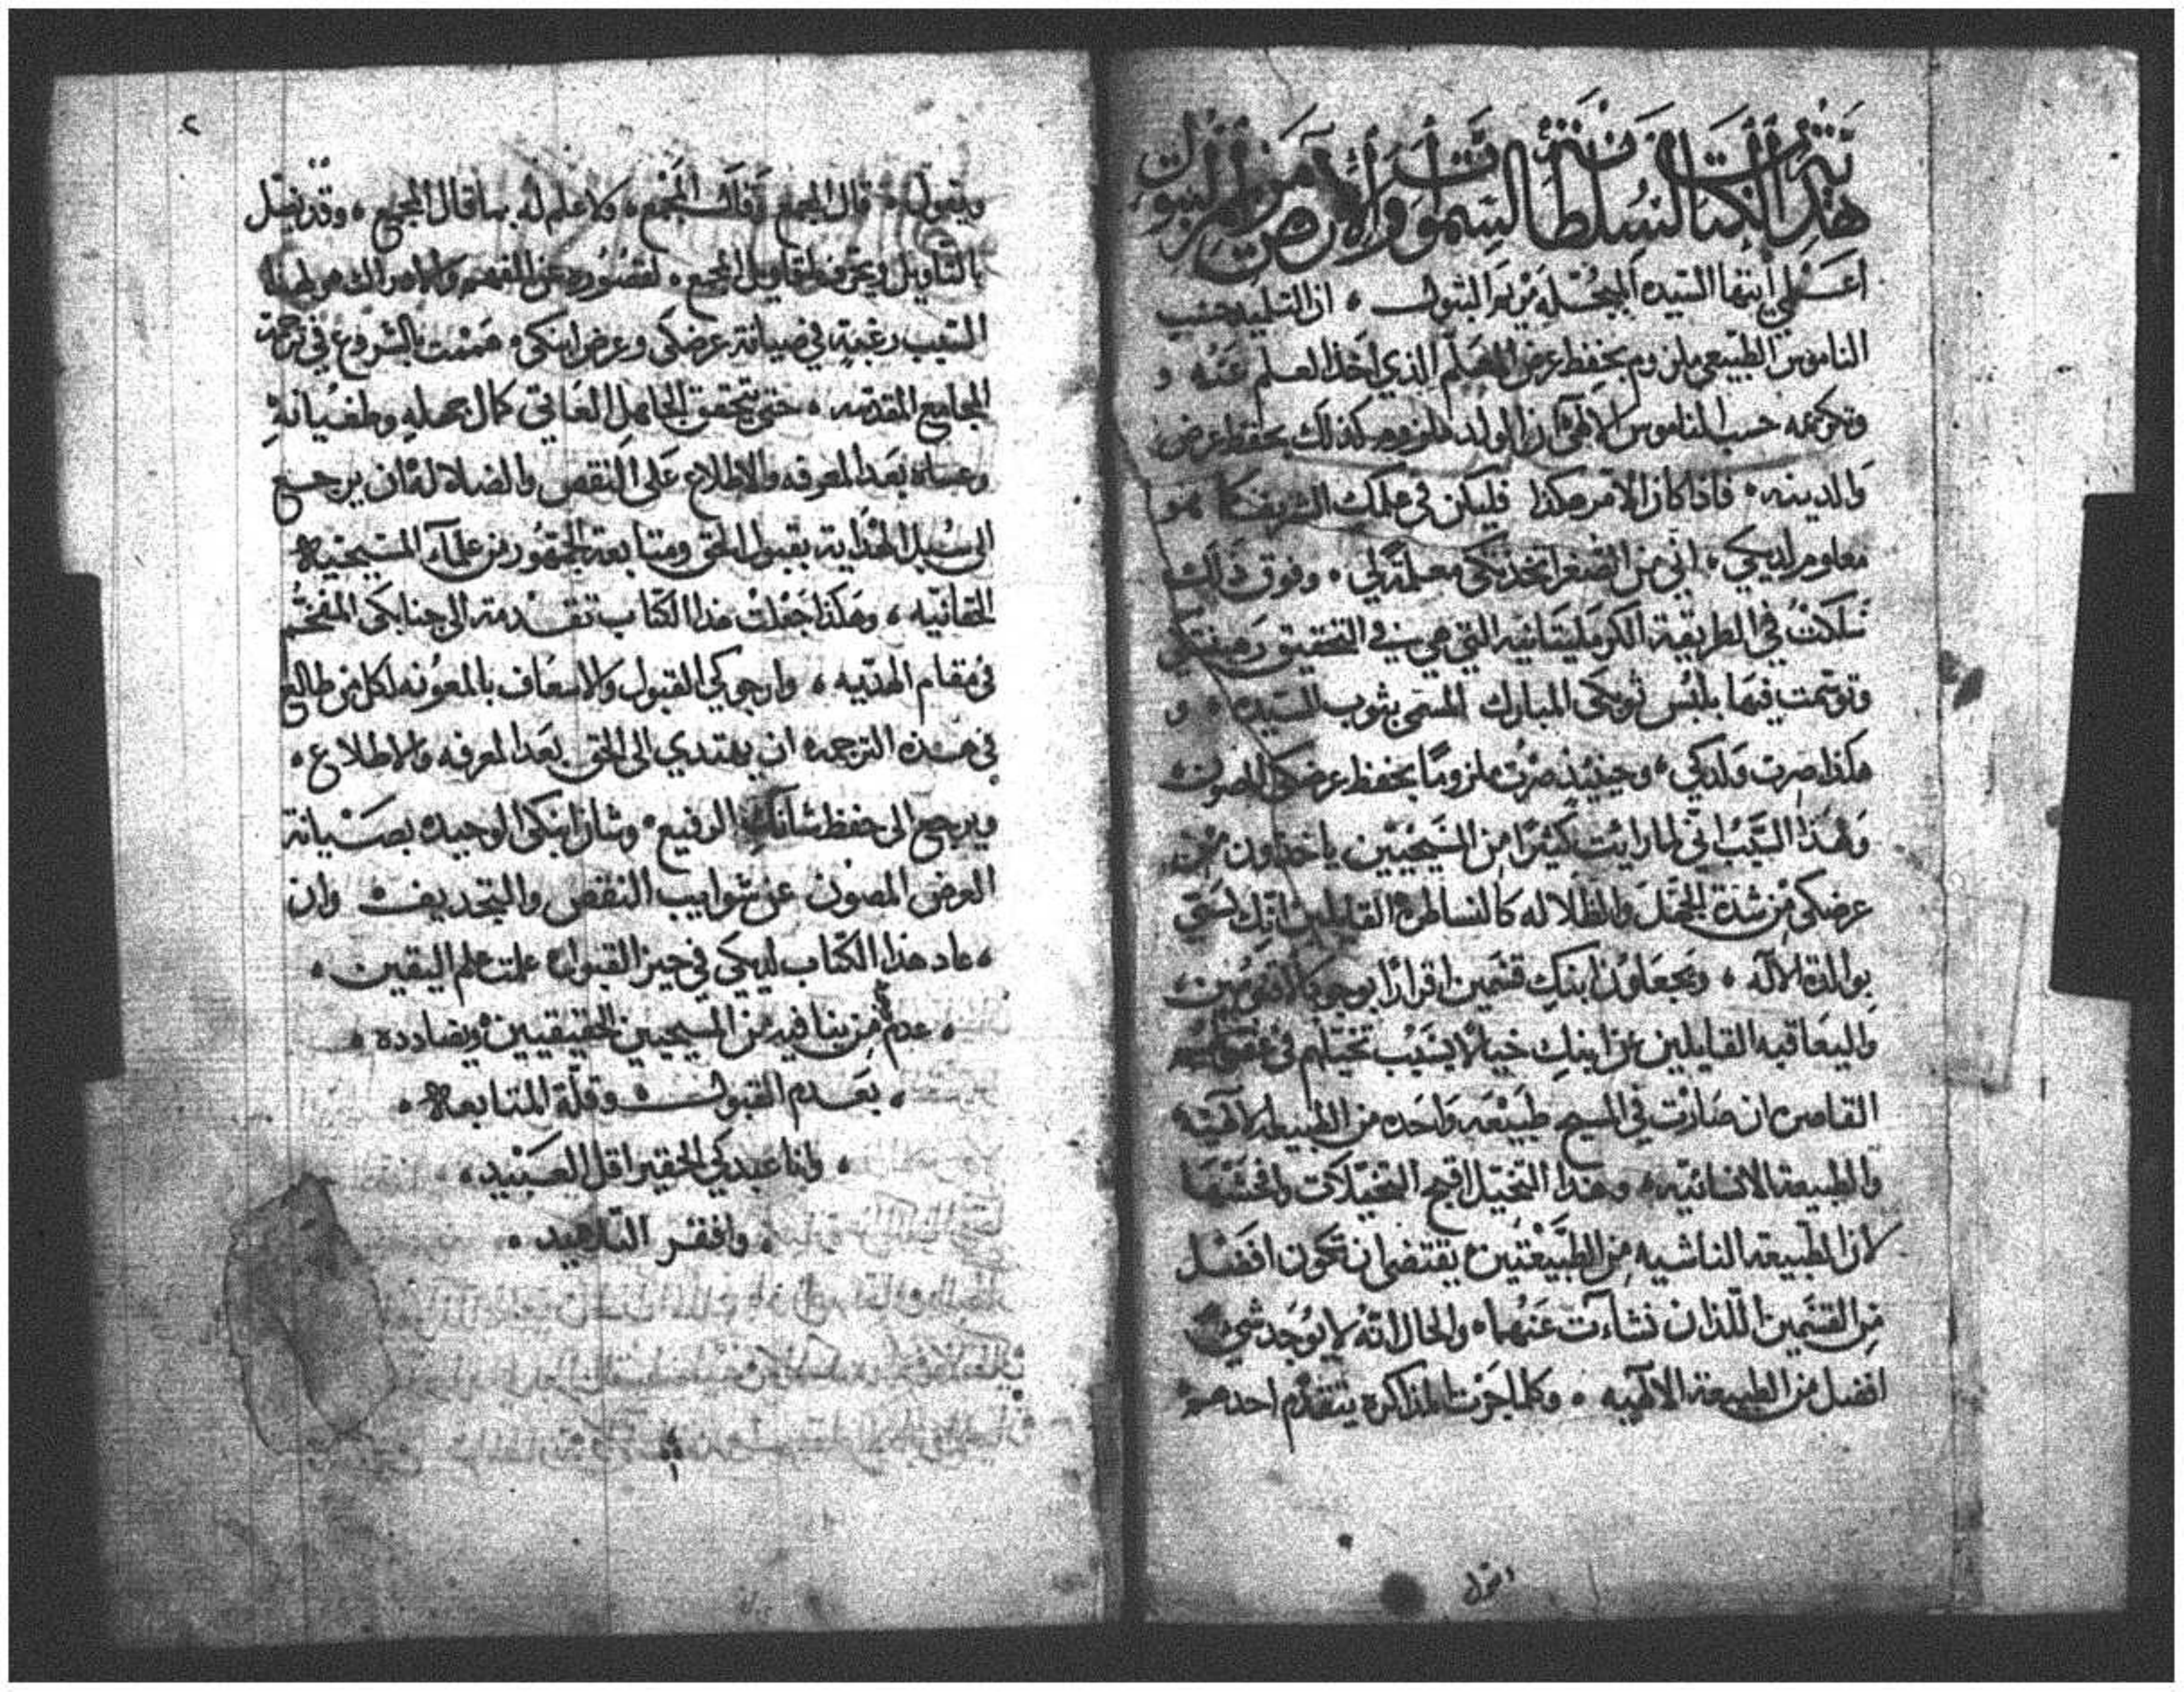 هذا الكتاب لسلطانة السموات والارض مريم البتول
اعلمي ايتها السيده المبجله مريم البتول ، ان التلميذ حسب
الناموس الطبيعي ملزوم بحفظ عرض المعلم الذي اخذ العلم عنه و
وتكرمه حسب الناموس الالهي ان الولد ملزوم كذلك بحفظ عرض
والدينه ، فاذا كان الامر هكذا فليكن في علمك الشريف كما هو
معلوم لديكي ، اني من الصغر اتخذتكي معلمة لي ، وفوق ذلك
سلكت في الطريقة الكرمليتانيه التي هي في التحقيق رهبنتكي
وتوسمت فيها بلبس ثوبكي المبارك المسمى بثوب السيده ، و
هكذا صرت ولدكي ، وحينيذ صرت ملزوما بحفظ عرضكي المصون
ولهذا السبب اني لما رايت كثيرا من المسيحيين ياخذون من
عرضكي من شدة الجهل والظلاله كالنساطره القايلين انك لستي
بوالدة الاله ، ويجعلون ابنك قسمين اقرارا بوجود الاقنومين
واليعاقبه القايلين عن ابنك خيالا بسبب تخيلهم في عقولهم
القاصره ان صارت في المسيح طبيعه واحده من الطبيعه الالهيه
والطبيعة الانسانيه ، وهذا التخيل اقبح التخيلات وافحشها
لان الطبيعه الناشيه من الطبيعتين يقتضى ان تكون افضل
من القسمين اللذان نشات عنهما ، والحال انه لا يوجد شي
افضل من الطبيعة الالهيه ، وكلما جرت المذاكره يتقدم احدهم
ويقول ، قال المجمع ، ولا علم له بما قال المجمع ، وقد يضل
بالتاويل ويحرف اقاويل المجمع ، لقصوره عن الفهم والادراك فلهذا
السبب رغبة في صيانة عرضكي وعرض ابنكي ، هممت بالشروع في ترجمة
المجامع المقدسه ، حتى يتحقق الجاهل العاتي كمال جهله وطغيانه
وعساه بعد المعرفه والاطلاع على النقص والضلاله ان يرجع
الى سبيل الهدايه بقبول الحق ومتابعة الجمهور من علماء المسيحية
الحقانيه ، وهكذا جعلت هذا الكتاب تقدمة الى جنابكي المفخم
في مقام الهديه ، وارجوكي القبول والاسعاف بالمعونه لكل من طالع
في هذه الترجمه ان يهتدي الى الحق بعد المعرفه والاطلاع ،
ويرجع الى حفظ شانك الرفيع ، وشان ابنكي الوحيد بصيانة
العرض المصون عن شوايب النقص والتجديف وان
، عاد هذا الكتاب لديكي في حيز القبول علمت علم اليقين ،
، عدم من ينافيه من المسيحيين الحقيقيين ويضادده ،
، بعدم القبول وقلة المتابعه ،
، وانا عبدكي الحقير اقل العبيد ،
، وافقر التلاميد ،